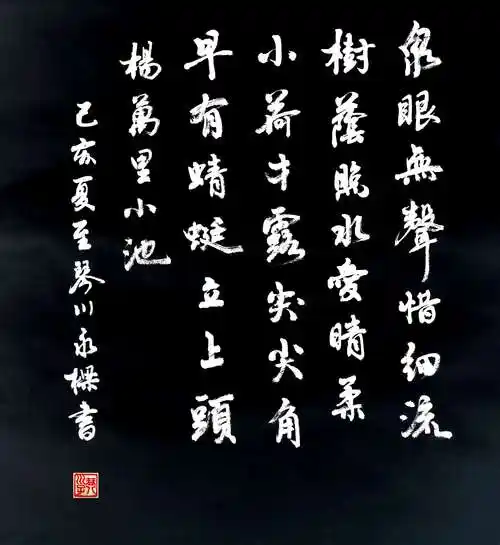 泉眼無聲惜細流
樹蔭照水愛晴柔
小荷才露尖尖角
早有蜻蜓立上頭
楊萬里小池
己亥夏至琴川永樑書